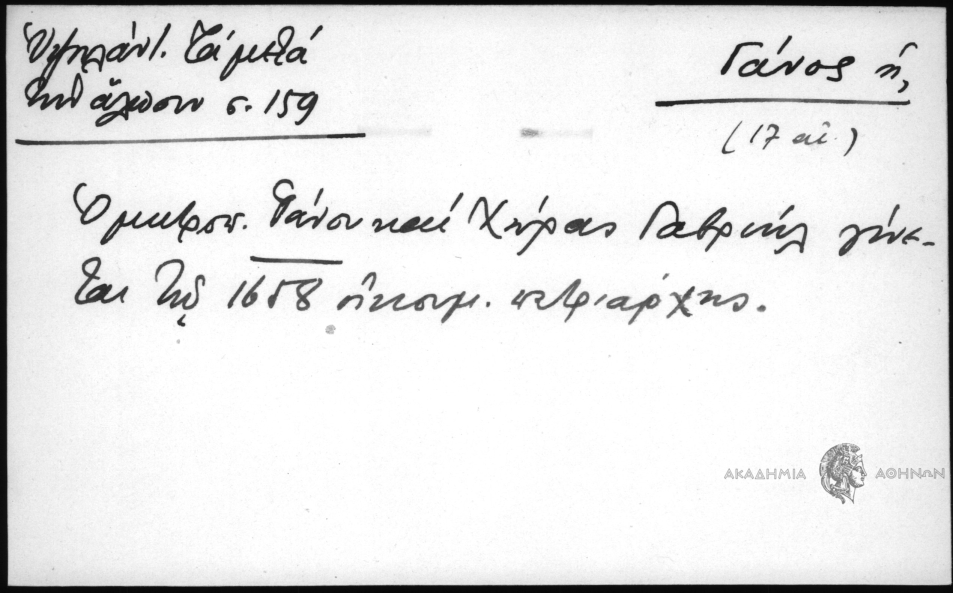 Ὑψηλάντ. Τὰ μετὰ
τὴν ἅλωσιν σ. 159
Γάνος ἡ,
(17 αἰ.)
Ὁ μητροπ. Γάνου καὶ Χώρας Γαβριὴλ γίνε-
ται τῷ 1658 οἰκουμ. πατριάρχης.
ΑΚΑΔΗΜΙΑ ΑΘΗΝΩΝ